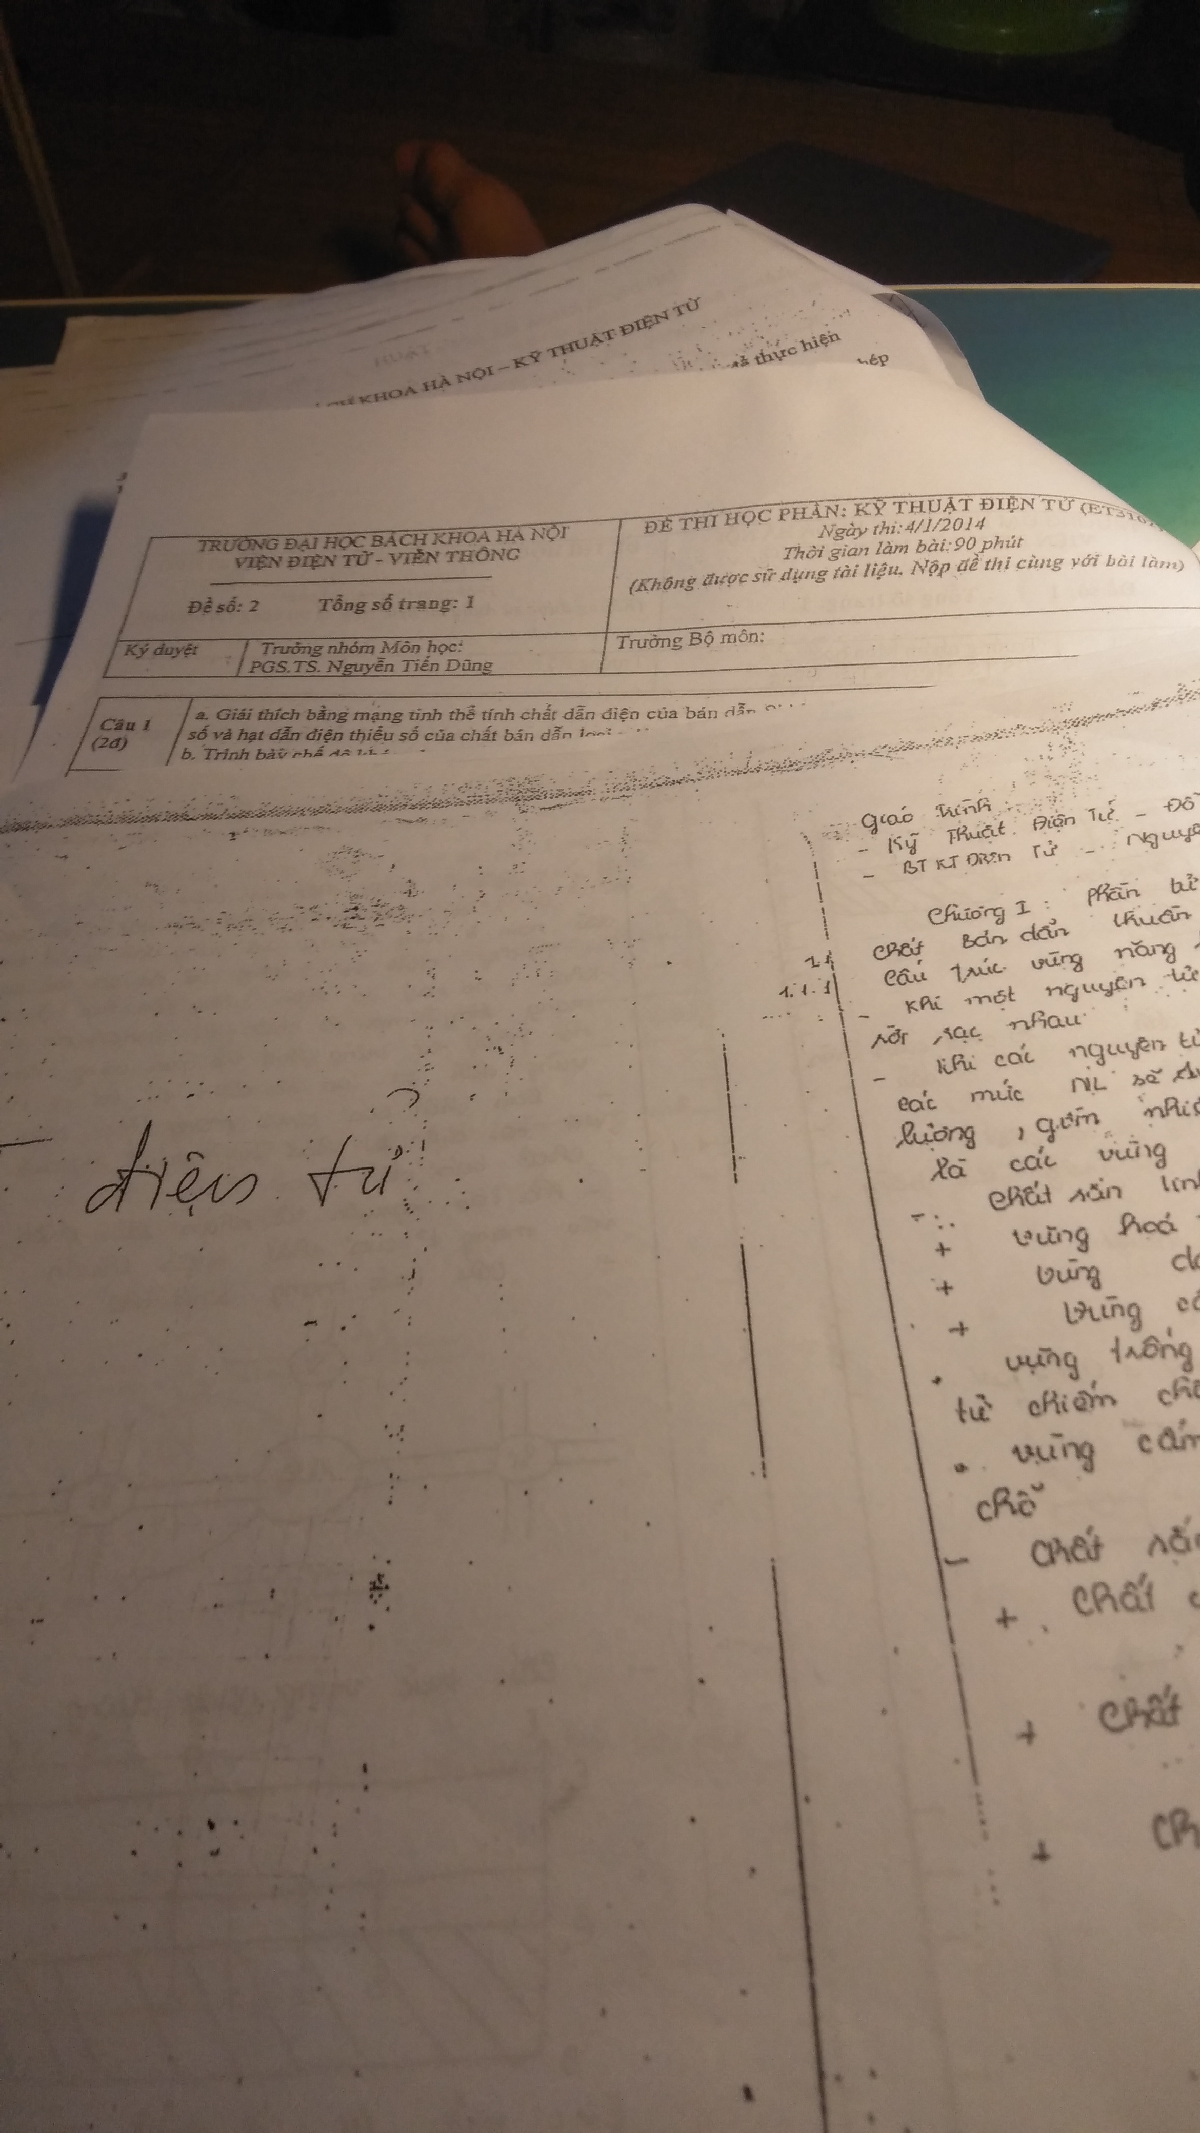 KHOA HÀ NỘI – KỸ THUẬT ĐIỆN TỬ
thực hiện
TRƯỜNG ĐẠI HỌC BÁCH KHOA HÀ NỘI
VIỆN ĐIỆN TỬ - VIỄN THÔNG
Đề số: 2 Tổng số trang: 1
ĐỀ THI HỌC PHẦN: KỸ THUẬT ĐIỆN TỬ
Ngày thi:4/1/2014
Thời gian làm bài:90 phút
(Không được sử dụng tài liệu. Nộp đề thi cùng với bài làm)
Ký duyệt
Trưởng nhóm Môn học:
PGS.TS. Nguyễn Tiến Dũng
Trưởng Bộ môn:
Câu 1
(2đ)
a. Giải thích bằng mạng tinh thể tính chất dẫn điện của bán dẫn
số và hạt dẫn điện thiểu số của chất bán dẫn
b. Trình bày chế độ
điện tử
giáo trình
- Kỹ Thuật Điện Tử - Đỗ
- BT KT Điện Tử -
Chương I : Phần tử
1.1 chất bán dẫn thuần
1.1.1 cấu trúc vùng năng
- khi một nguyên tử
rời rạc nhau
- khi các nguyên tử
các mức NL sẽ
lượng , gồm
là các vùng
- chất rắn
+ vùng hoá
+ vùng
+ vùng
• vùng trống
tử chiếm
• vùng cấm
chỗ
- chất
+ chất
+ chất
+